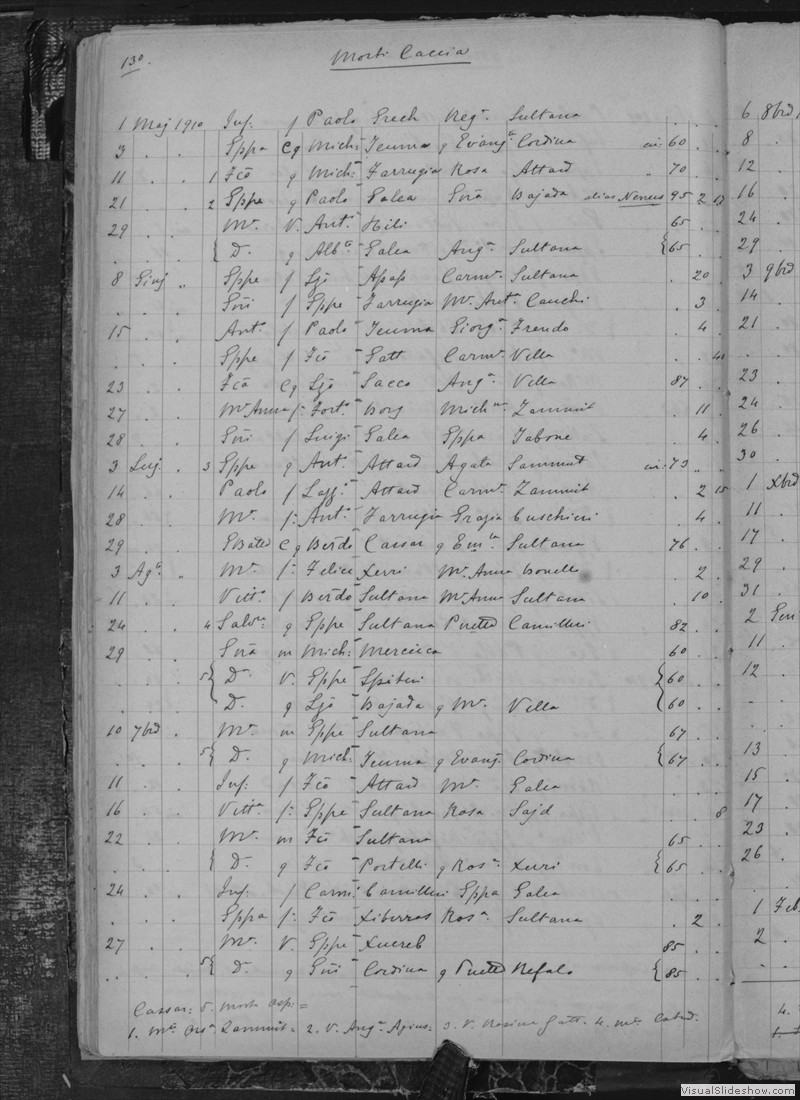 130. Morti Caccia
1 Maj 1910 Inf. f Paolo Grech Reg.ª Sultana . . .
3 . . Gppa Cq Mich: Teuma q Evang.ª Cordina in: 60 . .
11 . . 1 Fcõ q Mich: Farrugia Rosa Attard " 70 . .
21 . . 2 Gppe q Paolo Galea Bajada alias Nenus 95 2 13
29 . . Mª. V. Ant.º Hili 65 . .
. . . { D.ª q Alb.º Galea Ang.ª Sultana {65 . .
8 Giuj " Gppe f Ljõ Apap Carm.ª Sultana . 20 .
. . . f Gppe Farrugia Mª Ant.ª Cauchi . 3 .
15 . . Ant.ª f Paolo Teuma Giorg.ª Frendo . 4 .
. . . Gppe f Fcõ Gatt Carm.ª Vella . .
23 . . Fcõ Cq Ljõ Sacco Ang.ª Vella 87 . .
27 . . Mª Anna f: Fort.º Borg Mich.na Zammit . 11 .
28 . . f Luigi Galea Gppa Tabone . 4 .
3 Luj. . 3 Gppe q Ant.º Attard Agata Sammut in: 73 " .
14 . . Paolo f Lazz.º Attard Carm.ª Zammit . 2 15
28 . . Mª. f: Ant.º Farrugia Grazia Cuschieri . 4 .
29 . . C q Berdo Cassar q Em.la Sultana 76 . .
3 Ag.º " Mª. f: Felice Xerri Mª Anna Bonello . 2 .
11 . . Vitt.ª f Berdo Sultana Mª Anna Sultana . 10 .
24 . . 4 Salv.re q Gppe Sultana Camilleri 82 . .
29 . . m Mich: Mercieca 60 . .
. . . 5{ D.ª V. Gppe Spiteri {60 . .
. . . D.ª q Ljõ Bajada q Mª. Vella {60 . .
10 7brẽ . Mª. m Gppe Sultana 67 . .
. . . 5{ D.ª q Mich: Teuma q Evang.ª Cordina {67 . .
11 . . Inf. f Fcõ Attard Mª. Galea . . .
16 . . Vitt.ª f: Gppe Sultana Rosa Sajd . . 8
22 . . Mª. m Fcõ Sultana 65 . .
. . . { D.ª q Fcõ Portelli q Ros.ª Xerri {65 . .
24 . . Inf. f Carm: Camilleri Gppa Galea . . .
. . . Gppa f: Fcõ Xiberras Ros.ª Sultana . 2 .
27 . . Mª. V. Gppe Xuereb 85 . .
. . . 5{ D.ª q Cordina q Refalo {85 . .
Cassar: 5.
1. Mª Zammit. 2. V. Ang.ª Apius: 3. V. Gatt. 4. mª
6 8brẽ
8
12
16
24
29
3 9brẽ
14
21
.
23
24
26
30
1 Xbrẽ
11
17
29
31
2
11
12
.
.
13
15
17
23
26
.
1 Feb.
2
.
4.
VisualSlideshow.com